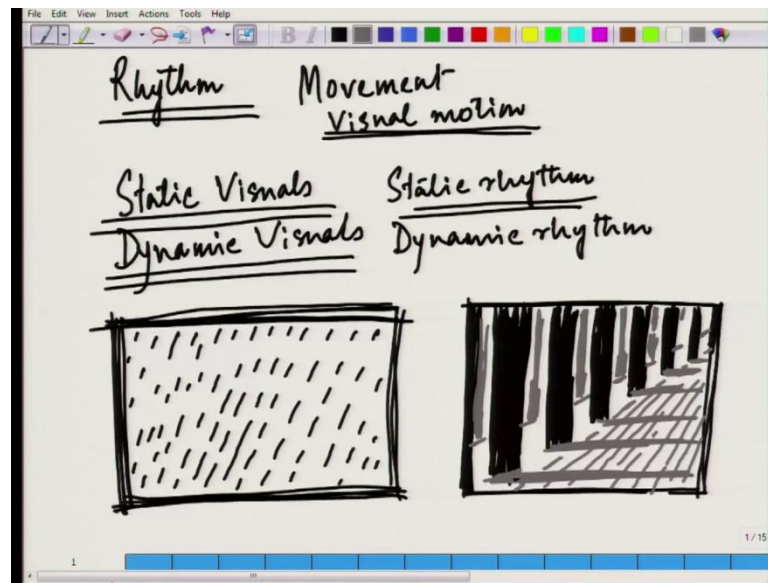 File Edit View Insert Actions Tools Help
B I
Rhythm Movement
Visual motion
Static Visuals Static rhythm
Dynamic Visuals Dynamic rhythm
1 / 15
1